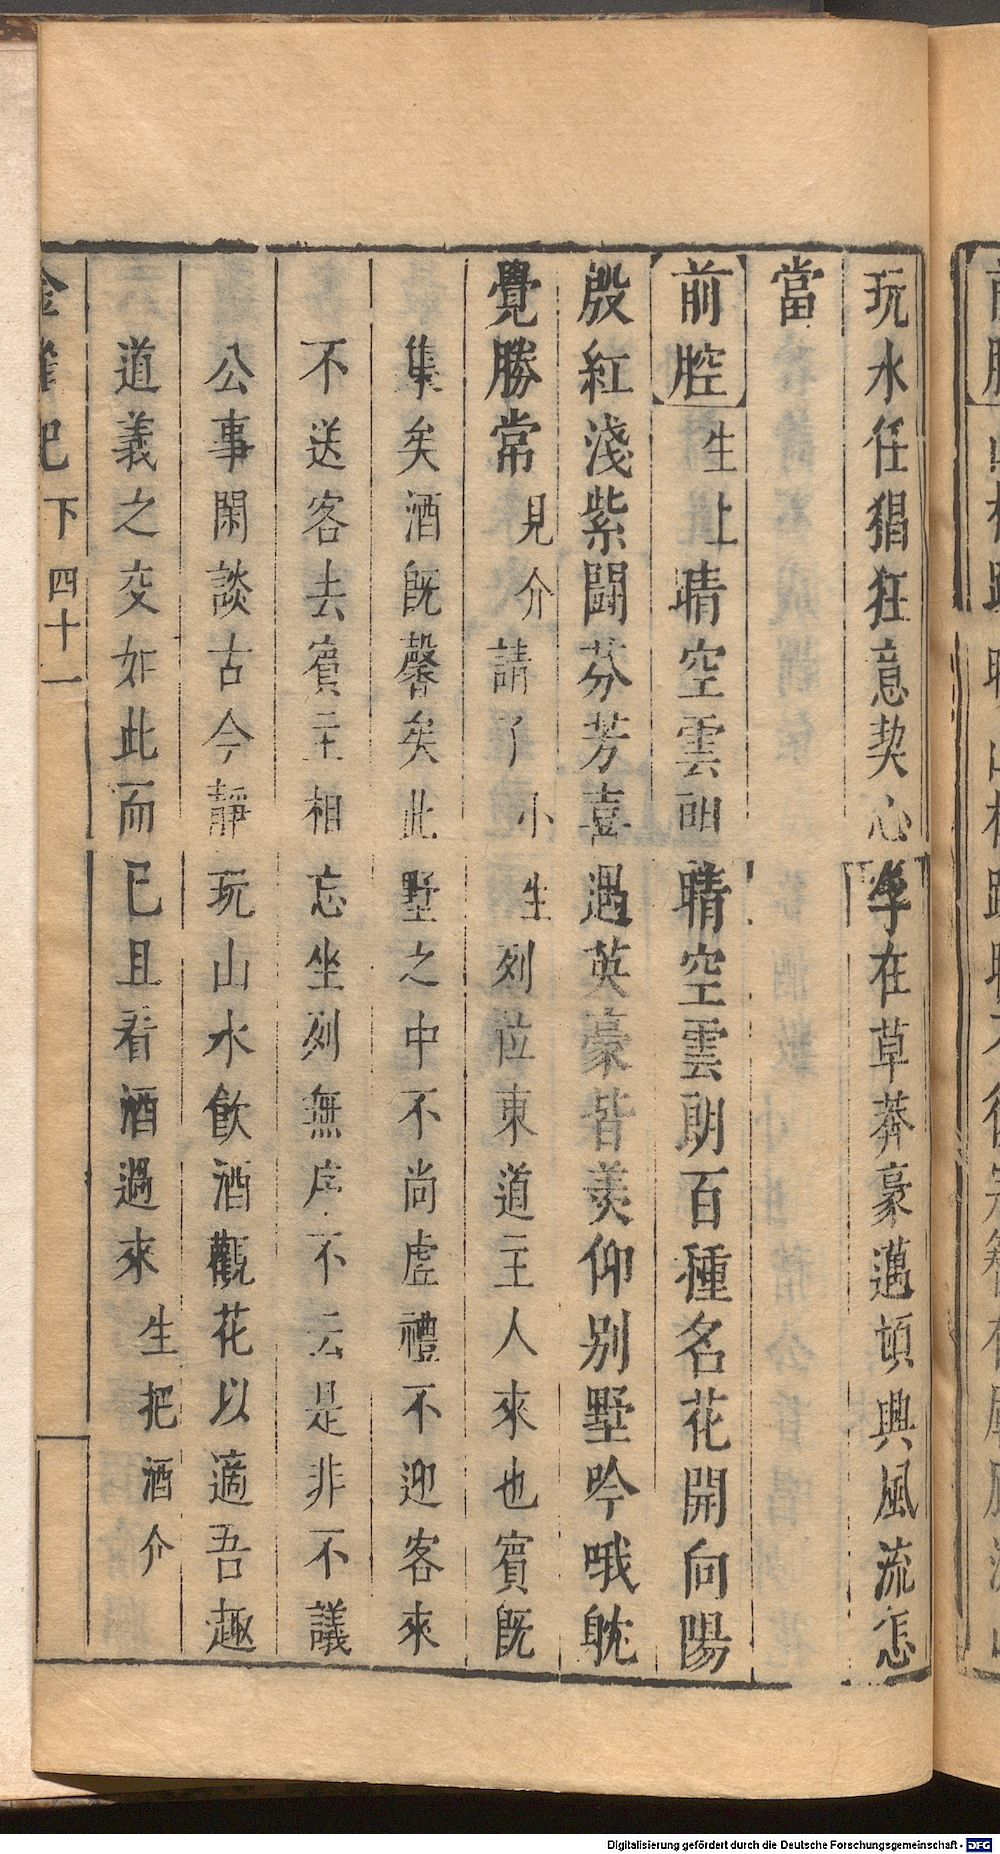 玩水任猖狂意契心孚在草莽豪邁頑興風流怎
當
前腔 生上晴空雲朗晴空雲朗百種名花開向陽
殷紅淺紫鬪芬芳喜遇英豪皆羡仰别墅吟哦躭
覺勝常 見介請了 小生列位東道主人來也賓既
集矣酒既馨矣此墅之中不尚虛禮不迎客來
不送客去賓主相忘坐列無序不云是非不議
公事閑談古今靜玩山水飲酒觀花以適吾趣
道義之交如此而已且看酒過來 生把酒介
金雀記 下 四十一
Digitalisierung gefördert durch die Deutsche Forschungsgemeinschaft - DFG